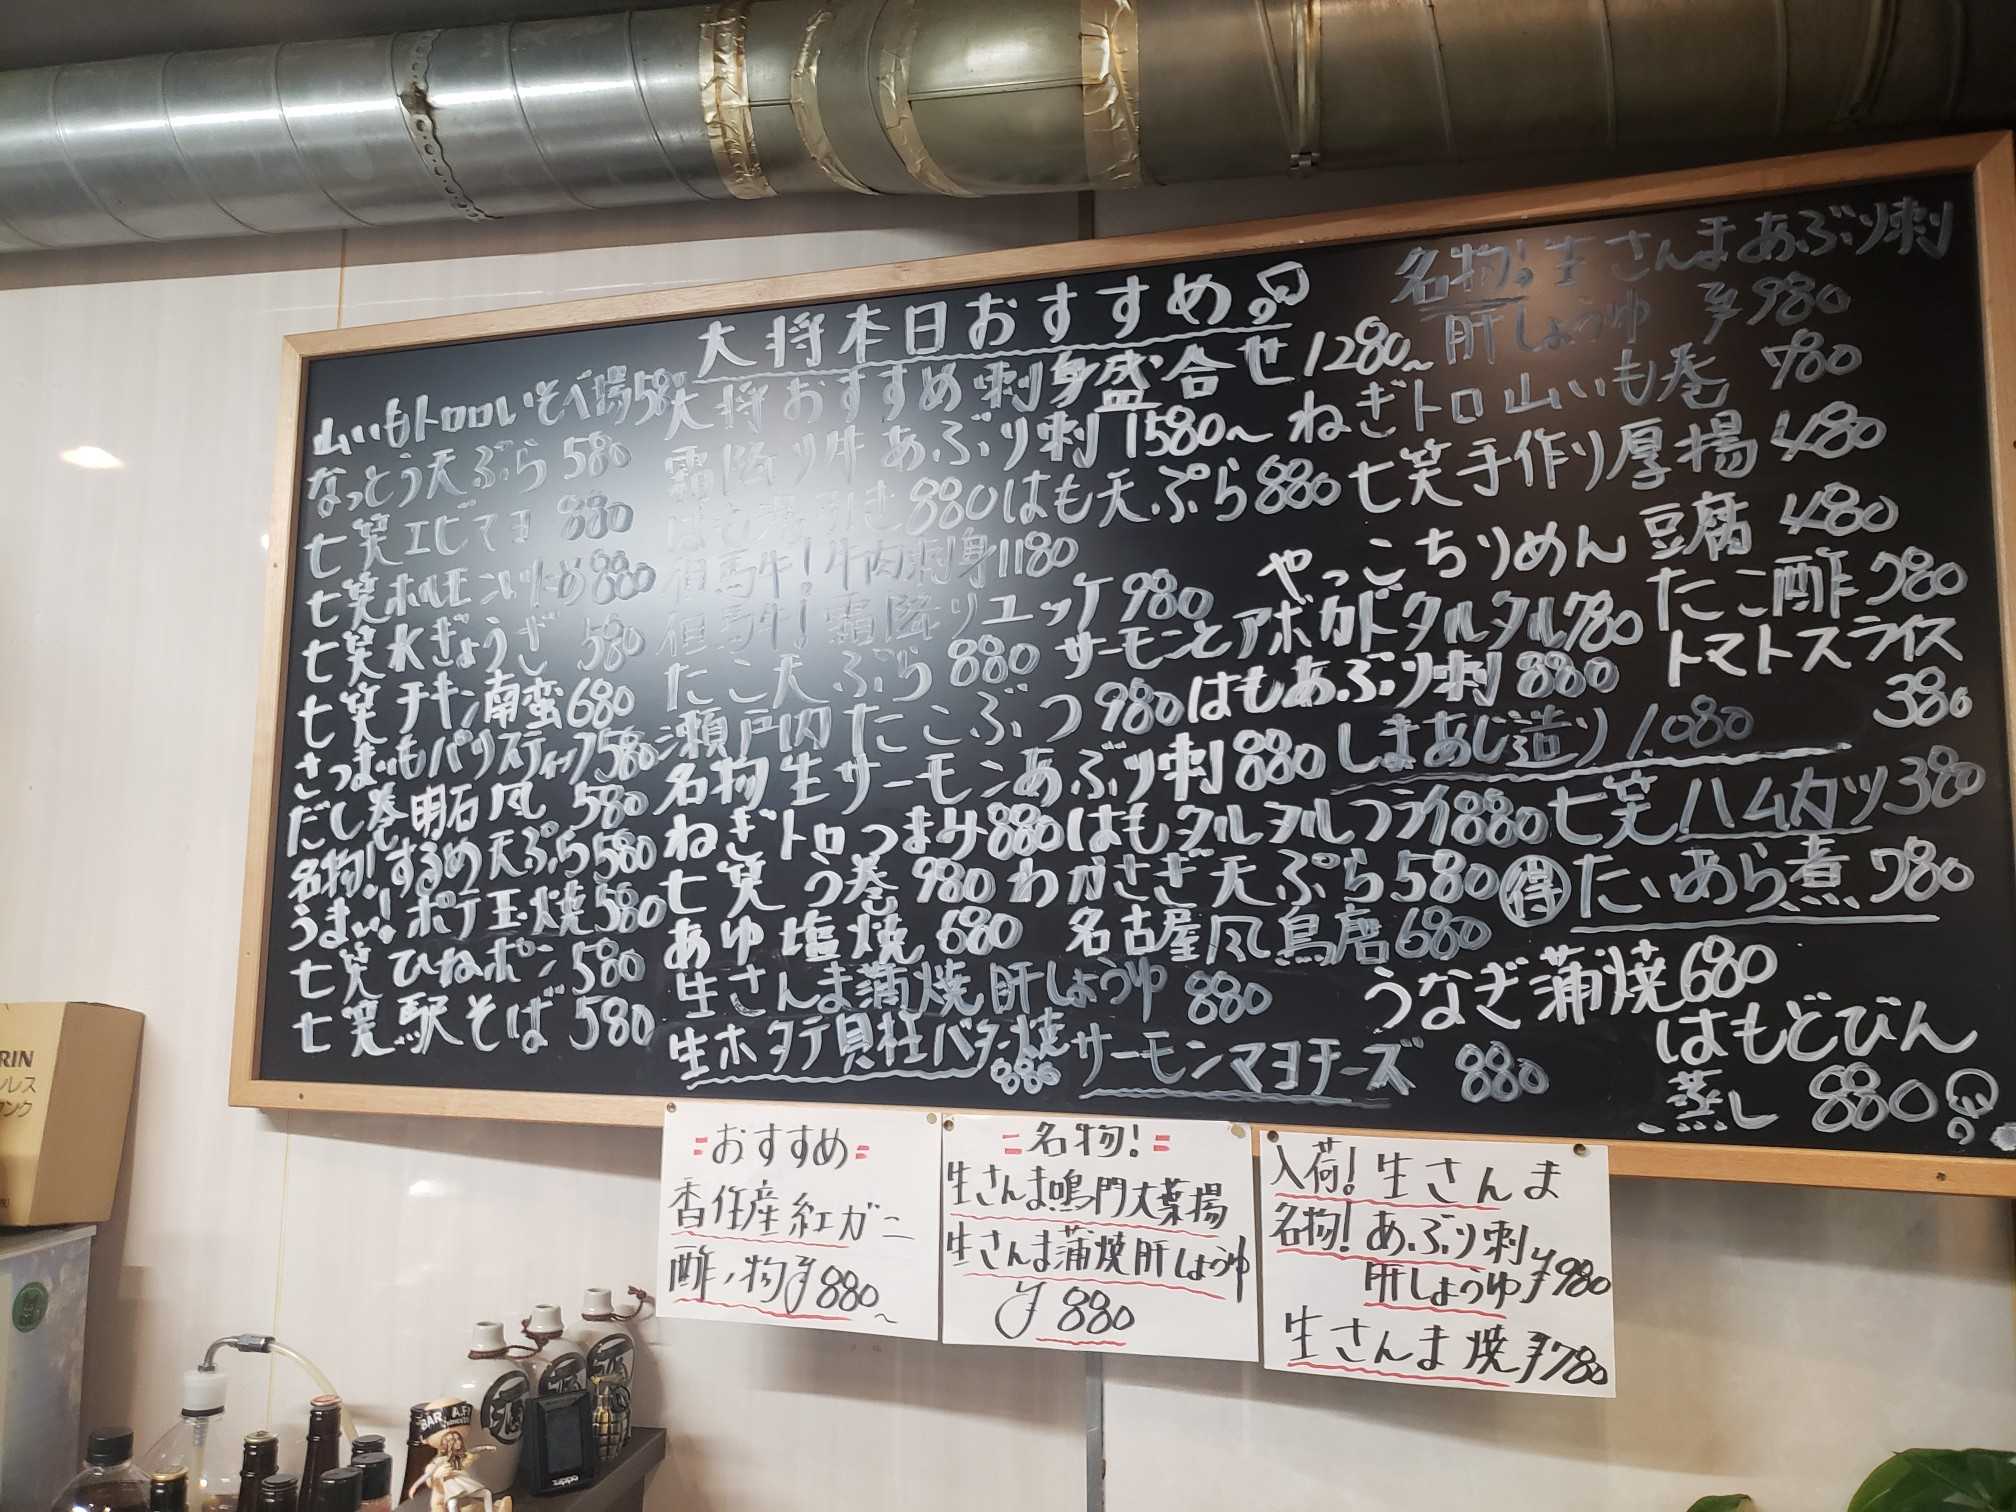 大将本日おすすめ
山いもトロロいそべ揚580
なっとう天ぷら 580
七笑エビマヨ 880
七笑ホルモンいため880
七笑水ぎょうざ 580
七笑チキン南蛮680
さつまいもパリスティック580
だし巻明石風 580
名物!するめ天ぷら580
うまい!ポテ玉焼580
七笑ひねポン580
七笑駅そば580
大将おすすめ刺身盛合せ1280~
霜降り牛あぶり刺1580~
はも湯引き880
はも天ぷら880
但馬牛!牛肉刺身1180
但馬牛!霜降りユッケ980
たこ天ぷら880
サーモンとアボカドタルタル780
瀬戸内たこぶつ980
はもあぶり刺880
名物生サーモンあぶり刺880
しまあじ造り1080
ねぎトロつまみ880
はもタルタルフライ880
七笑う巻980
わかさぎ天ぷら580
あゆ塩焼680
名古屋風鳥唐680
生さんま蒲焼肝しょうゆ880
生ホタテ貝柱バター焼
880
サーモンマヨチーズ880
名物!生さんまあぶり刺
肝しょうゆ 980
ねぎトロ山いも巻 780
七笑手作り厚揚480
やっこちりめん豆腐480
たこ酢780
トマトスライス
380
七笑ハムカツ380
得たいあら煮780
うなぎ蒲焼680
はもどびん
蒸し 880
=おすすめ=
香住産紅ガニ
酢ノ物880~
=名物!=
生さんま鳴門大葉揚
生さんま蒲焼肝しょうゆ
880
入荷!生さんま
名物!あぶり刺
肝しょうゆ980
生さんま焼780
RIN
BAR
zippo